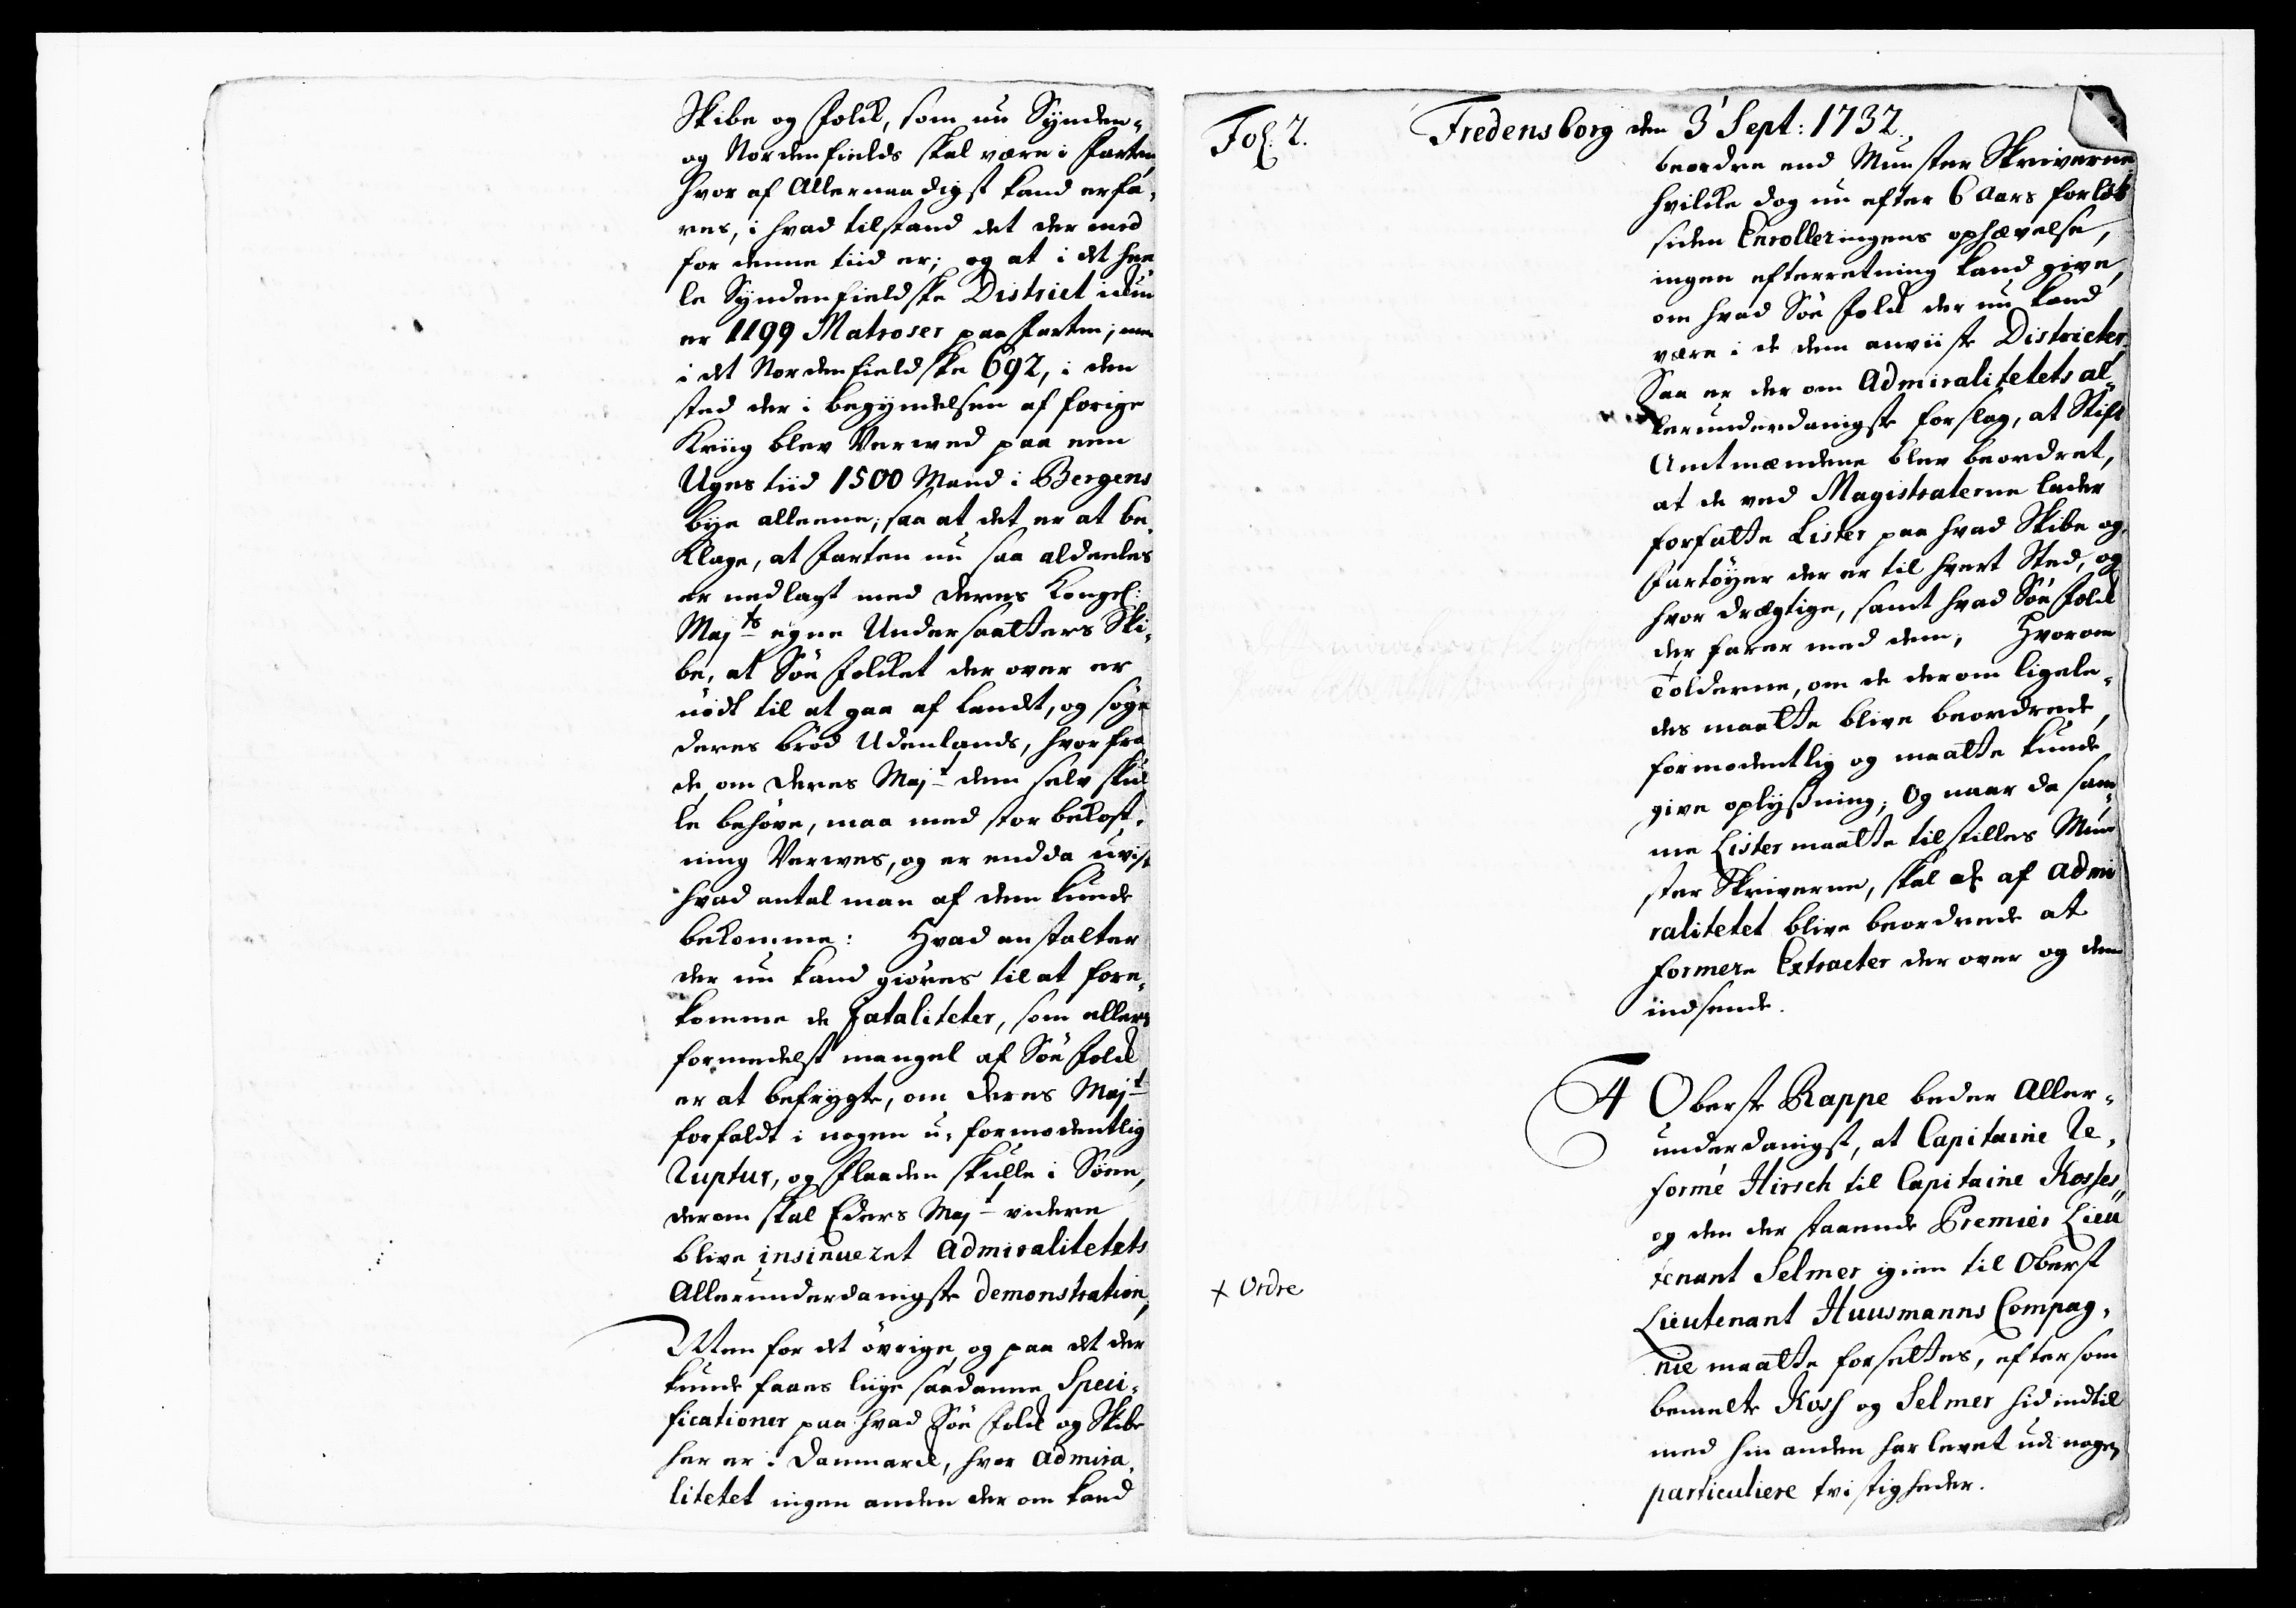 Skibe og Folck, som nu Synden-
og Nordenfields skal være i Farten,
hvor af Allernaadigst kand erfa-
res, i hvad tilstand det der med
for denne tiid er; og at i det hee
le Syndenfieldske District ickun
er 1199 Matroser paa Farten; men
i det Nordenfieldske 692, i den
sted der i begyndelsen af forige
Kriig blev Verwed paa een
Uges tiid 1500 Mand i Bergens
bye alleene; saa at det er at be-
klage, at Farten nu saa aldeeles
er nedlagt med Deres Kongel:
Majts egne Undersaatters Ski-
be, at Söe Folcket der over er
nödt til at gaa af Landet, og söge
deres bröd Udenlands, hvorfra
de, om Deres Majt dem selv skul
le behöve, maa med stor bekost-
ning Verwes, og er endda uvist
hvad antal man af dem kunde
bekomme: Hvad anstalter
der nu kand giöres til at fore-
komme de fataliteter, som ellers
formedelst mangel af Söe Folck
er at befrygte, om Deres Majt
forfaldt i nogen u-formodentlig
Ruptur, og Flaaden skulle i Söen,
derom skal Eders Majt videre
blive insinueret Admiralitetets
Allerunderdanigste demonstration;
Men for det övrige, og paa det der
kunde faaes liige saadanne Speci-
ficationer paa hvad Söe Folck og Skibe
her er i Danmarck, hvor Admira-
litetet ingen anden der om kand
Fol. 2.
Fredensborg den 3' Sept: 1732.
beordre end Munster Skriverne,
hvilcke dog nu efter 6 Aars forlöb
siden Enrolleringens ophævelse,
ingen efterretning kand give,
om hvad Söe Folck der nu kand
være i de dem anviiste Districter,
Saa er der om Admiralitetets al-
lerunderdanigste forslag, at Stift
Amtmændene blev beordret,
at de ved Magistraterne lader
forfatte Lister paa hvad Skibe og
Fartöyer der er til hvert Sted, og
hvor drægtige, samt hvad Söe Folck
der farer med dem; Hvorom
Tolderne, om de derom ligele-
des maatte blive beordrede,
formodentlig og maatte kunde
give oplyßning; Og naar da sam-
me Lister maatte tilstilles Mun
ster Skriverne, skal de af Admi
ralitetet blive beordrede at
formere Extracter der over og dem
indsende.
4 Oberste Rappe beder Aller-
underdanigst, at Capitaine Re-
formé Hirsch til Capitaine Kosses,
og den der staaende Premier Lieu
tenant Selmer igien til Oberst
Lieutenant Huusmanns Compag-
nie maatte forsettes, eftersom
bemelte Koss og Selmer hid indtil
med hin anden har levet udi nogen
particuliere tvistigheder.
+ Ordre